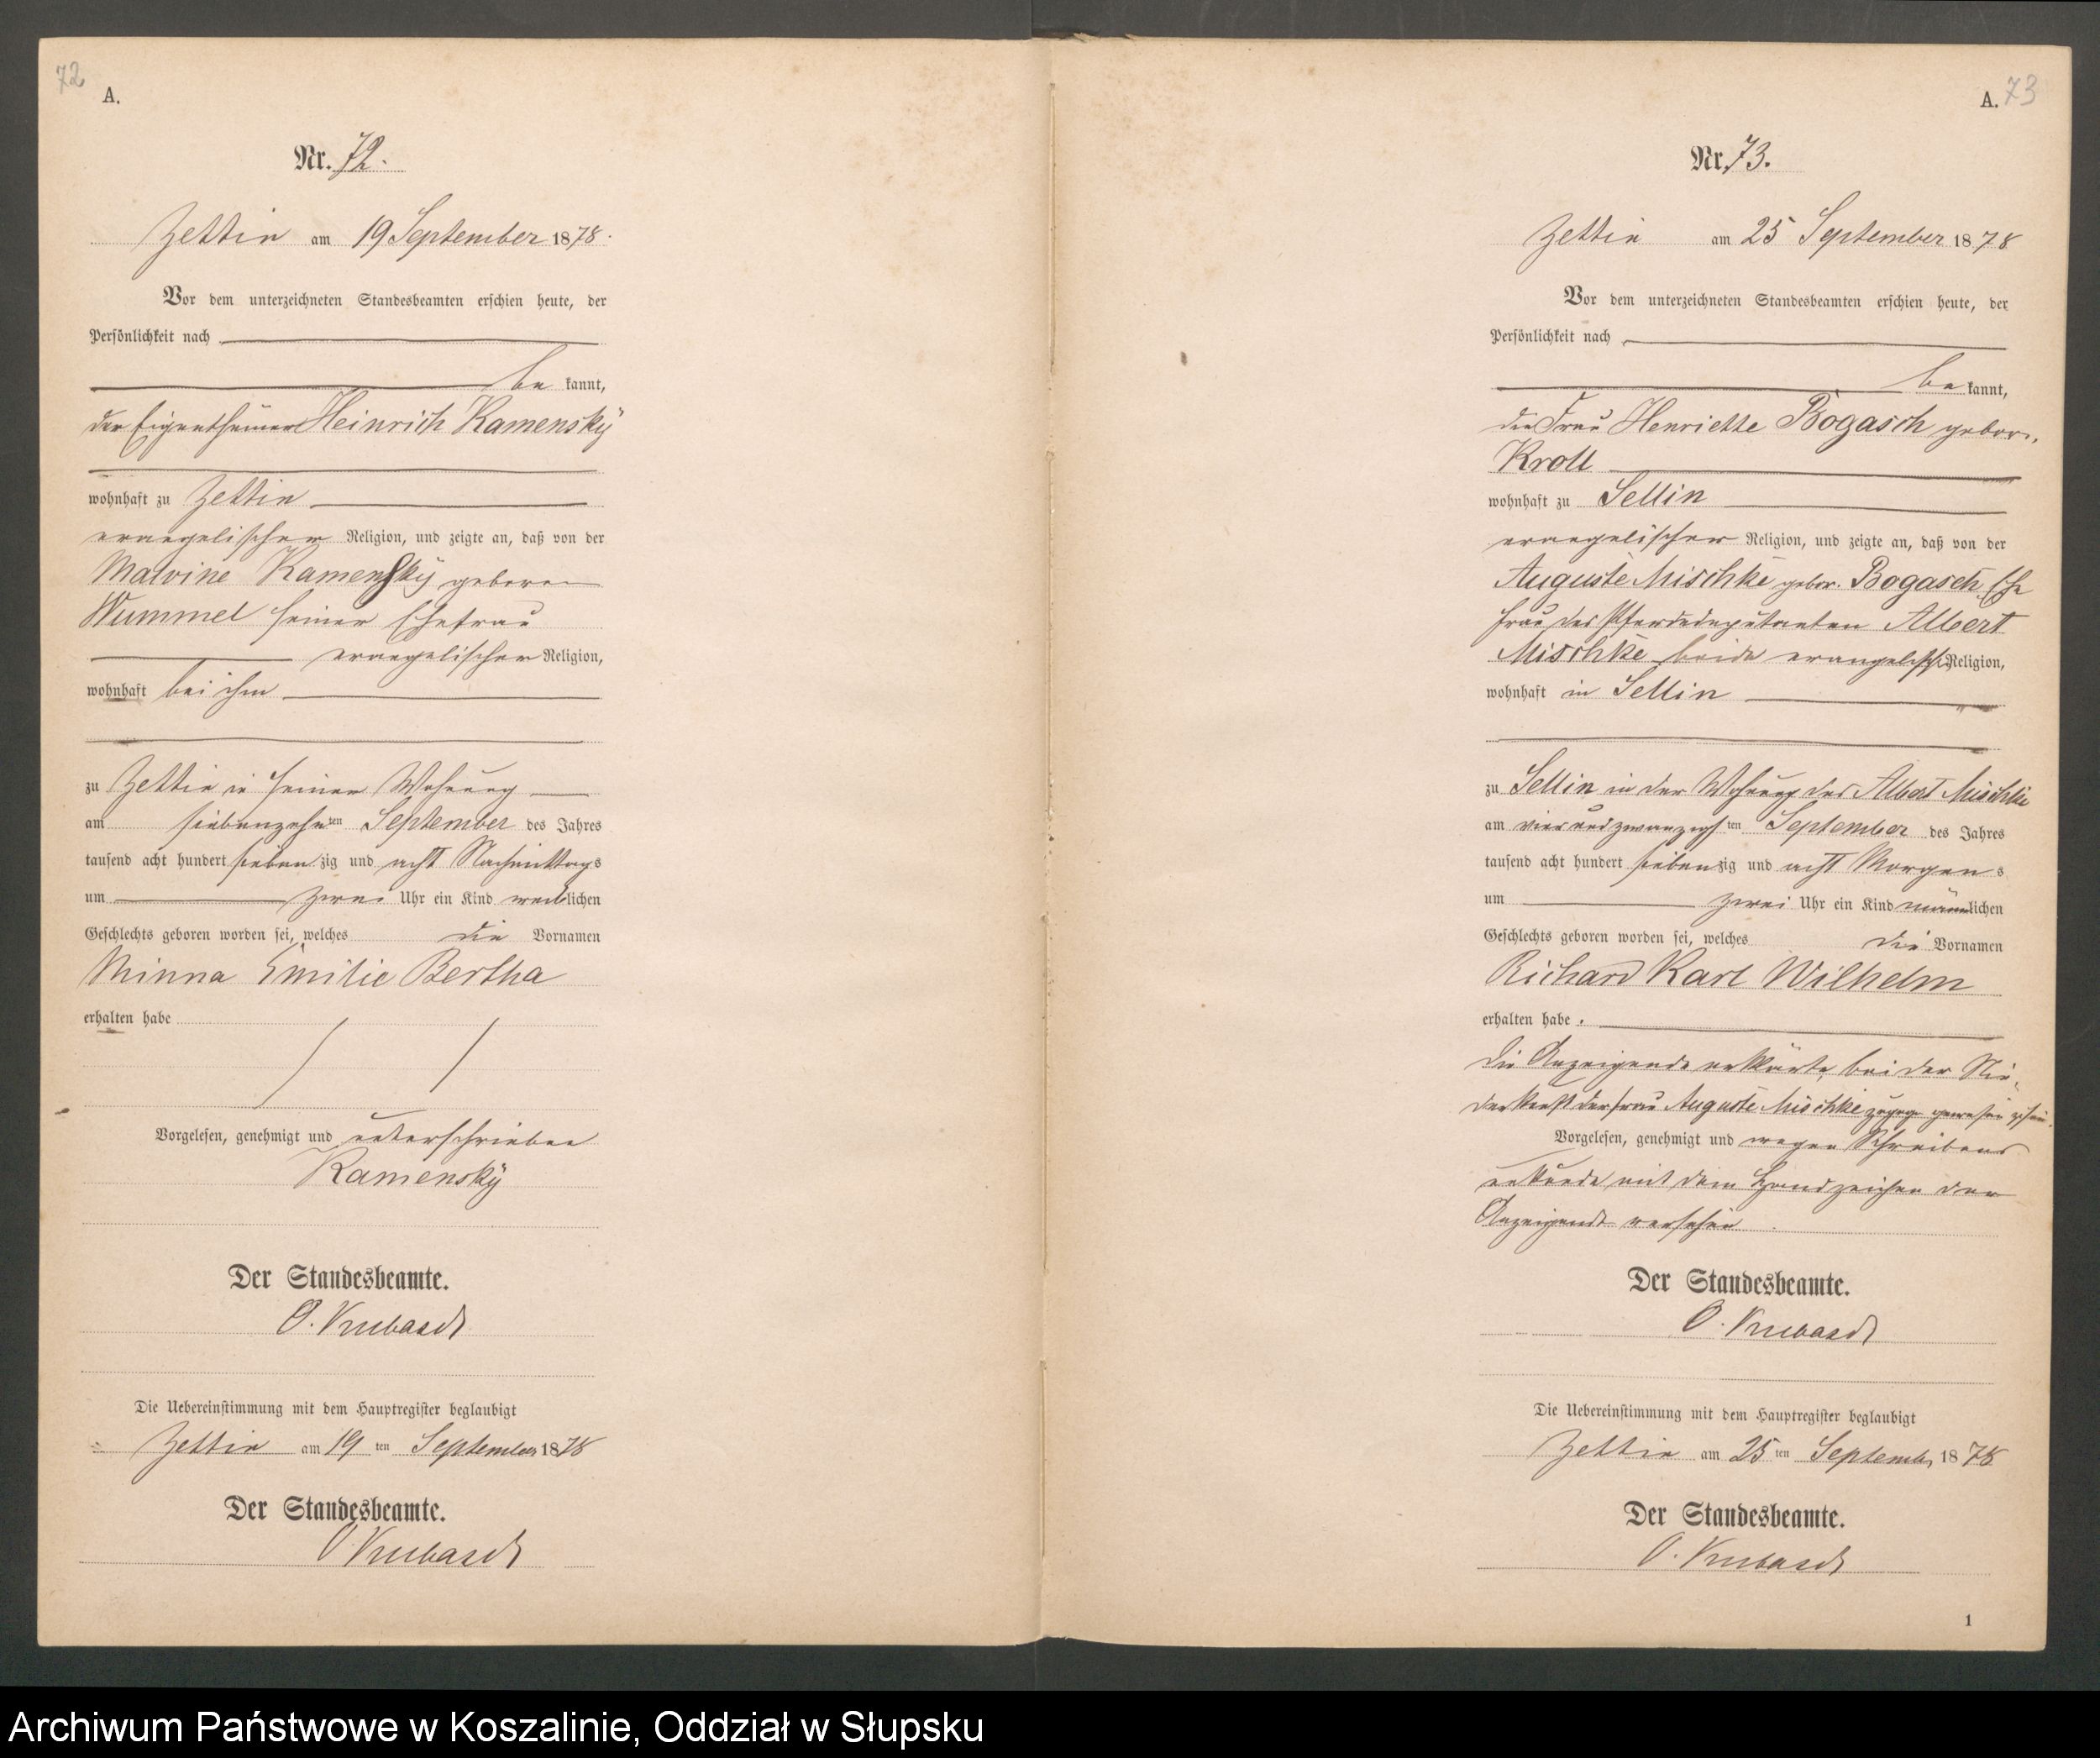 72
A.
Nr. 72.
Zettin am 19 September 1878.
Vor dem unterzeichneten Standesbeamten erschien heute, der
Persönlichkeit nach
be kannt,
der Eigenthümer Heinrich Kamensky
wohnhaft zu Zettin
evangelischer Religion, und zeigte an, daß von der
Malvine Kamensky geboren
Wummel seiner Ehefrau
evangelischer Religion,
wohnhaft bei ihm
zu Zettin in seiner Wohnung
am siebenzehnten September des Jahres
tausend acht hundert siebenzig und acht Nachmittags
um zwei Uhr ein Kind weiblichen
Geschlechts geboren worden sei, welches die Vornamen
Minna Emilie Bertha
erhalten habe
Vorgelesen, genehmigt und unterschrieben
Kamensky
Der Standesbeamte.
O.
Die Uebereinstimmung mit dem Hauptregister beglaubigt
Zettin am 19 ten September 1878
Der Standesbeamte.
O.
A. 73
Nr. 73.
Zettin am 25 September 1878
Vor dem unterzeichneten Standesbeamten erschien heute, der
Persönlichkeit nach
be kannt,
die Frau Henriette Bogasch gebor.
Kroll
wohnhaft zu Sellin
evangelischer Religion, und zeigte an, daß von der
Auguste Mischke gebor. Bogasch Ehe
frau des Pferdedeputanten Albert
Mischke beide evangelisch Religion,
wohnhaft in Sellin
zu Sellin in der Wohnung des Albert Mischke
am vierundzwanzigsten September des Jahres
tausend acht hundert siebenzig und acht Morgens
um zwei Uhr ein Kind männlichen
Geschlechts geboren worden sei, welches die Vornamen
Richard Karl Wilhelm
erhalten habe.
Die Anzeigende erklärte, bei der Nie-
derkunft der Frau Auguste Mischke zugegen gewesen zu sein.
Vorgelesen, genehmigt und wegen Schreibens
unkunde mit dem Handzeichen der
Anzeigende versehen
Der Standesbeamte.
O.
Die Uebereinstimmung mit dem Hauptregister beglaubigt
Zettin am 25 ten Septemb. 1878
Der Standesbeamte.
O.
1
Archiwum Państwowe w Koszalinie, Oddział w Słupsku